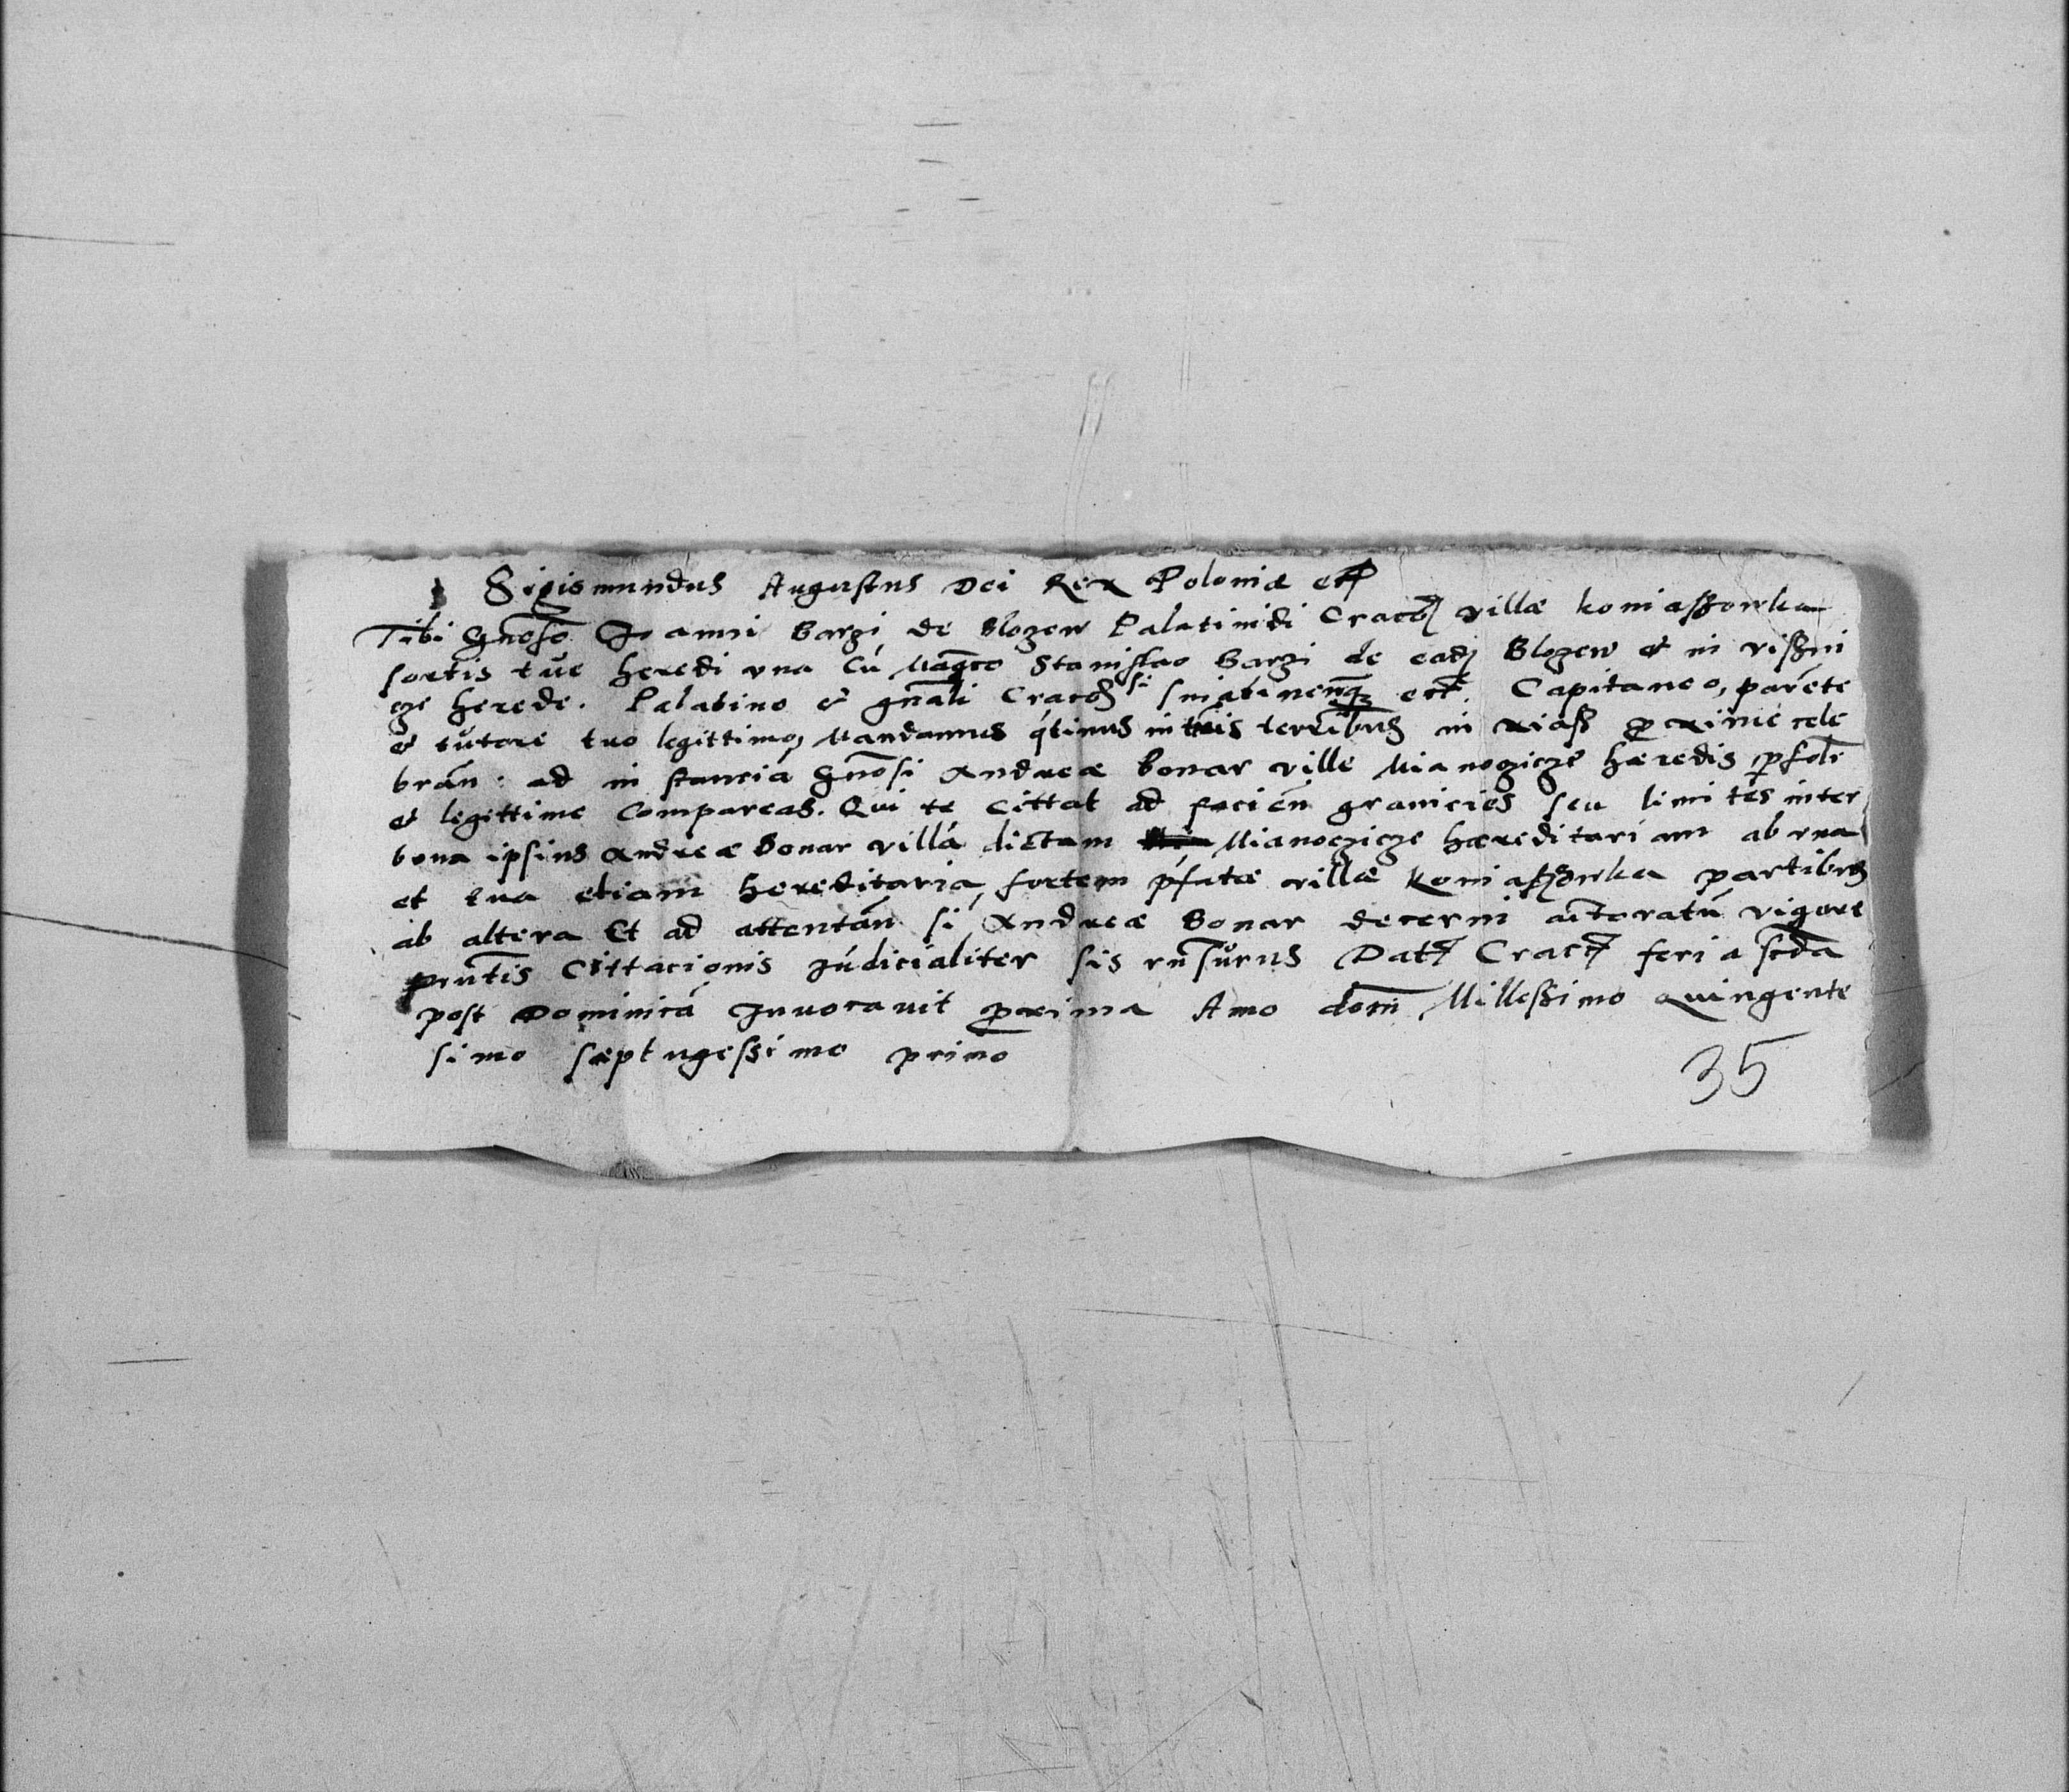 Sigismundus Augustus Dei Rex Poloniæ etc
Tibi Gñoso Joanni Barzi de Blozew Palatinidi Craco villæ koniaßowka
sortis tue heredi vna Cú Magco Stanislao Barzi de eadj Blozew et in vissni
cze herede. Palatino et gñali Craco si sniatinenqz ecc. Capitaneo, paréte
et tutore tuo legittimo, Mandamus qtinus in terribus in xiaß proxime cele
brán: ad in stanciá Gñosi Andreæ bonar ville Mianoczicze hæredis psolr
et legittime Compareas. Qui te Cittat ad facién granicies seu limites inter
bona ipsius Andreæ Bonar villá dictam Mianoczicze hæreditariam ab vna
et tua etiam hereditaria, sortem pfatæ villæ Koniaßowka partibus
ab altera Et ad attentán si Andreæ Bonar decerni actoratú vigore
pñtis Cittacionis Júdicialiter sis rñsurus Dat Crac feria scda
post Dominicá Inuocauit proxima Anno dom̃ Millessimo quingente
simo sæptugessimo primo
35